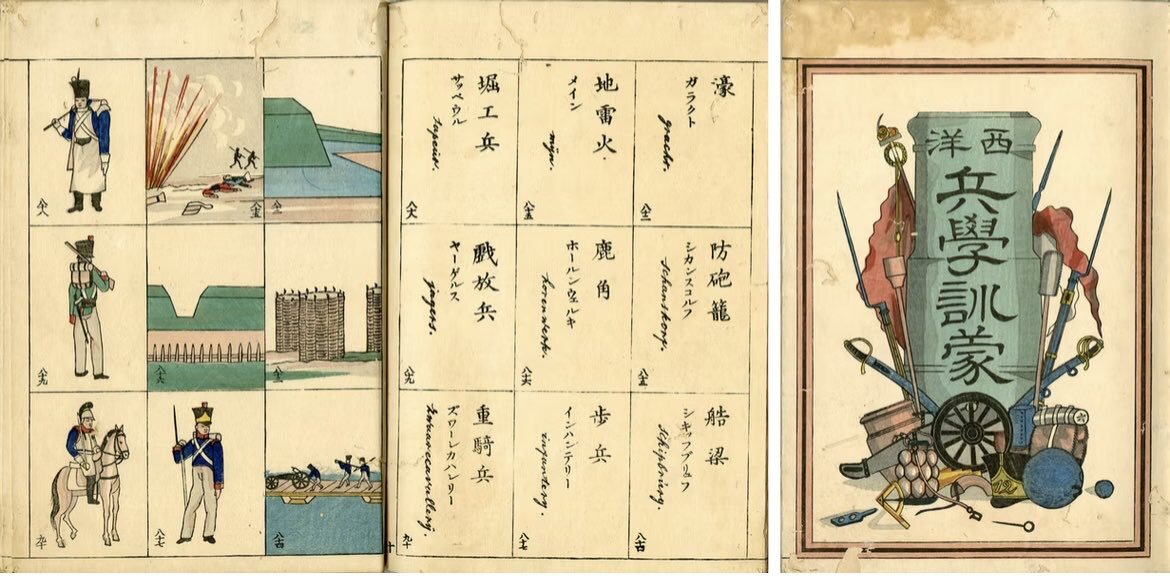 八二
八三
八四
八五
八六
八七
八八
八九
九十
濠
ガラクト
gracht.
八二
防砲籠
シカンスコルフ
Schanskorf.
八三
船梁
シキップブリュフ
Schipbrüg.
八四
地雷火
メイン
mijn.
八五
鹿角
ホールンウェルキ
horenwerk.
八六
歩兵
インハンテリー
infantery.
八七
堀工兵
サッペウル
sapeur.
八八
戯放兵
ヤーグルス
jagers.
八九
重騎兵
ズワーレカハレリー
zwarecavallerij.
九十
十
西洋
兵學訓蒙
12